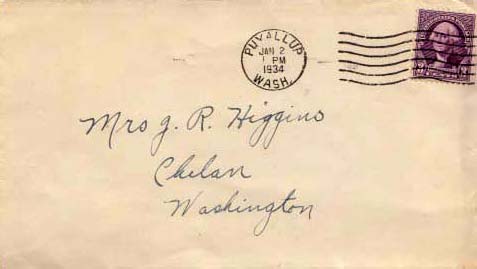 PUYALLUP
JAN 2
1 PM
1934
WASH.
Mrs J. R. Higgins
Chelan
Washington